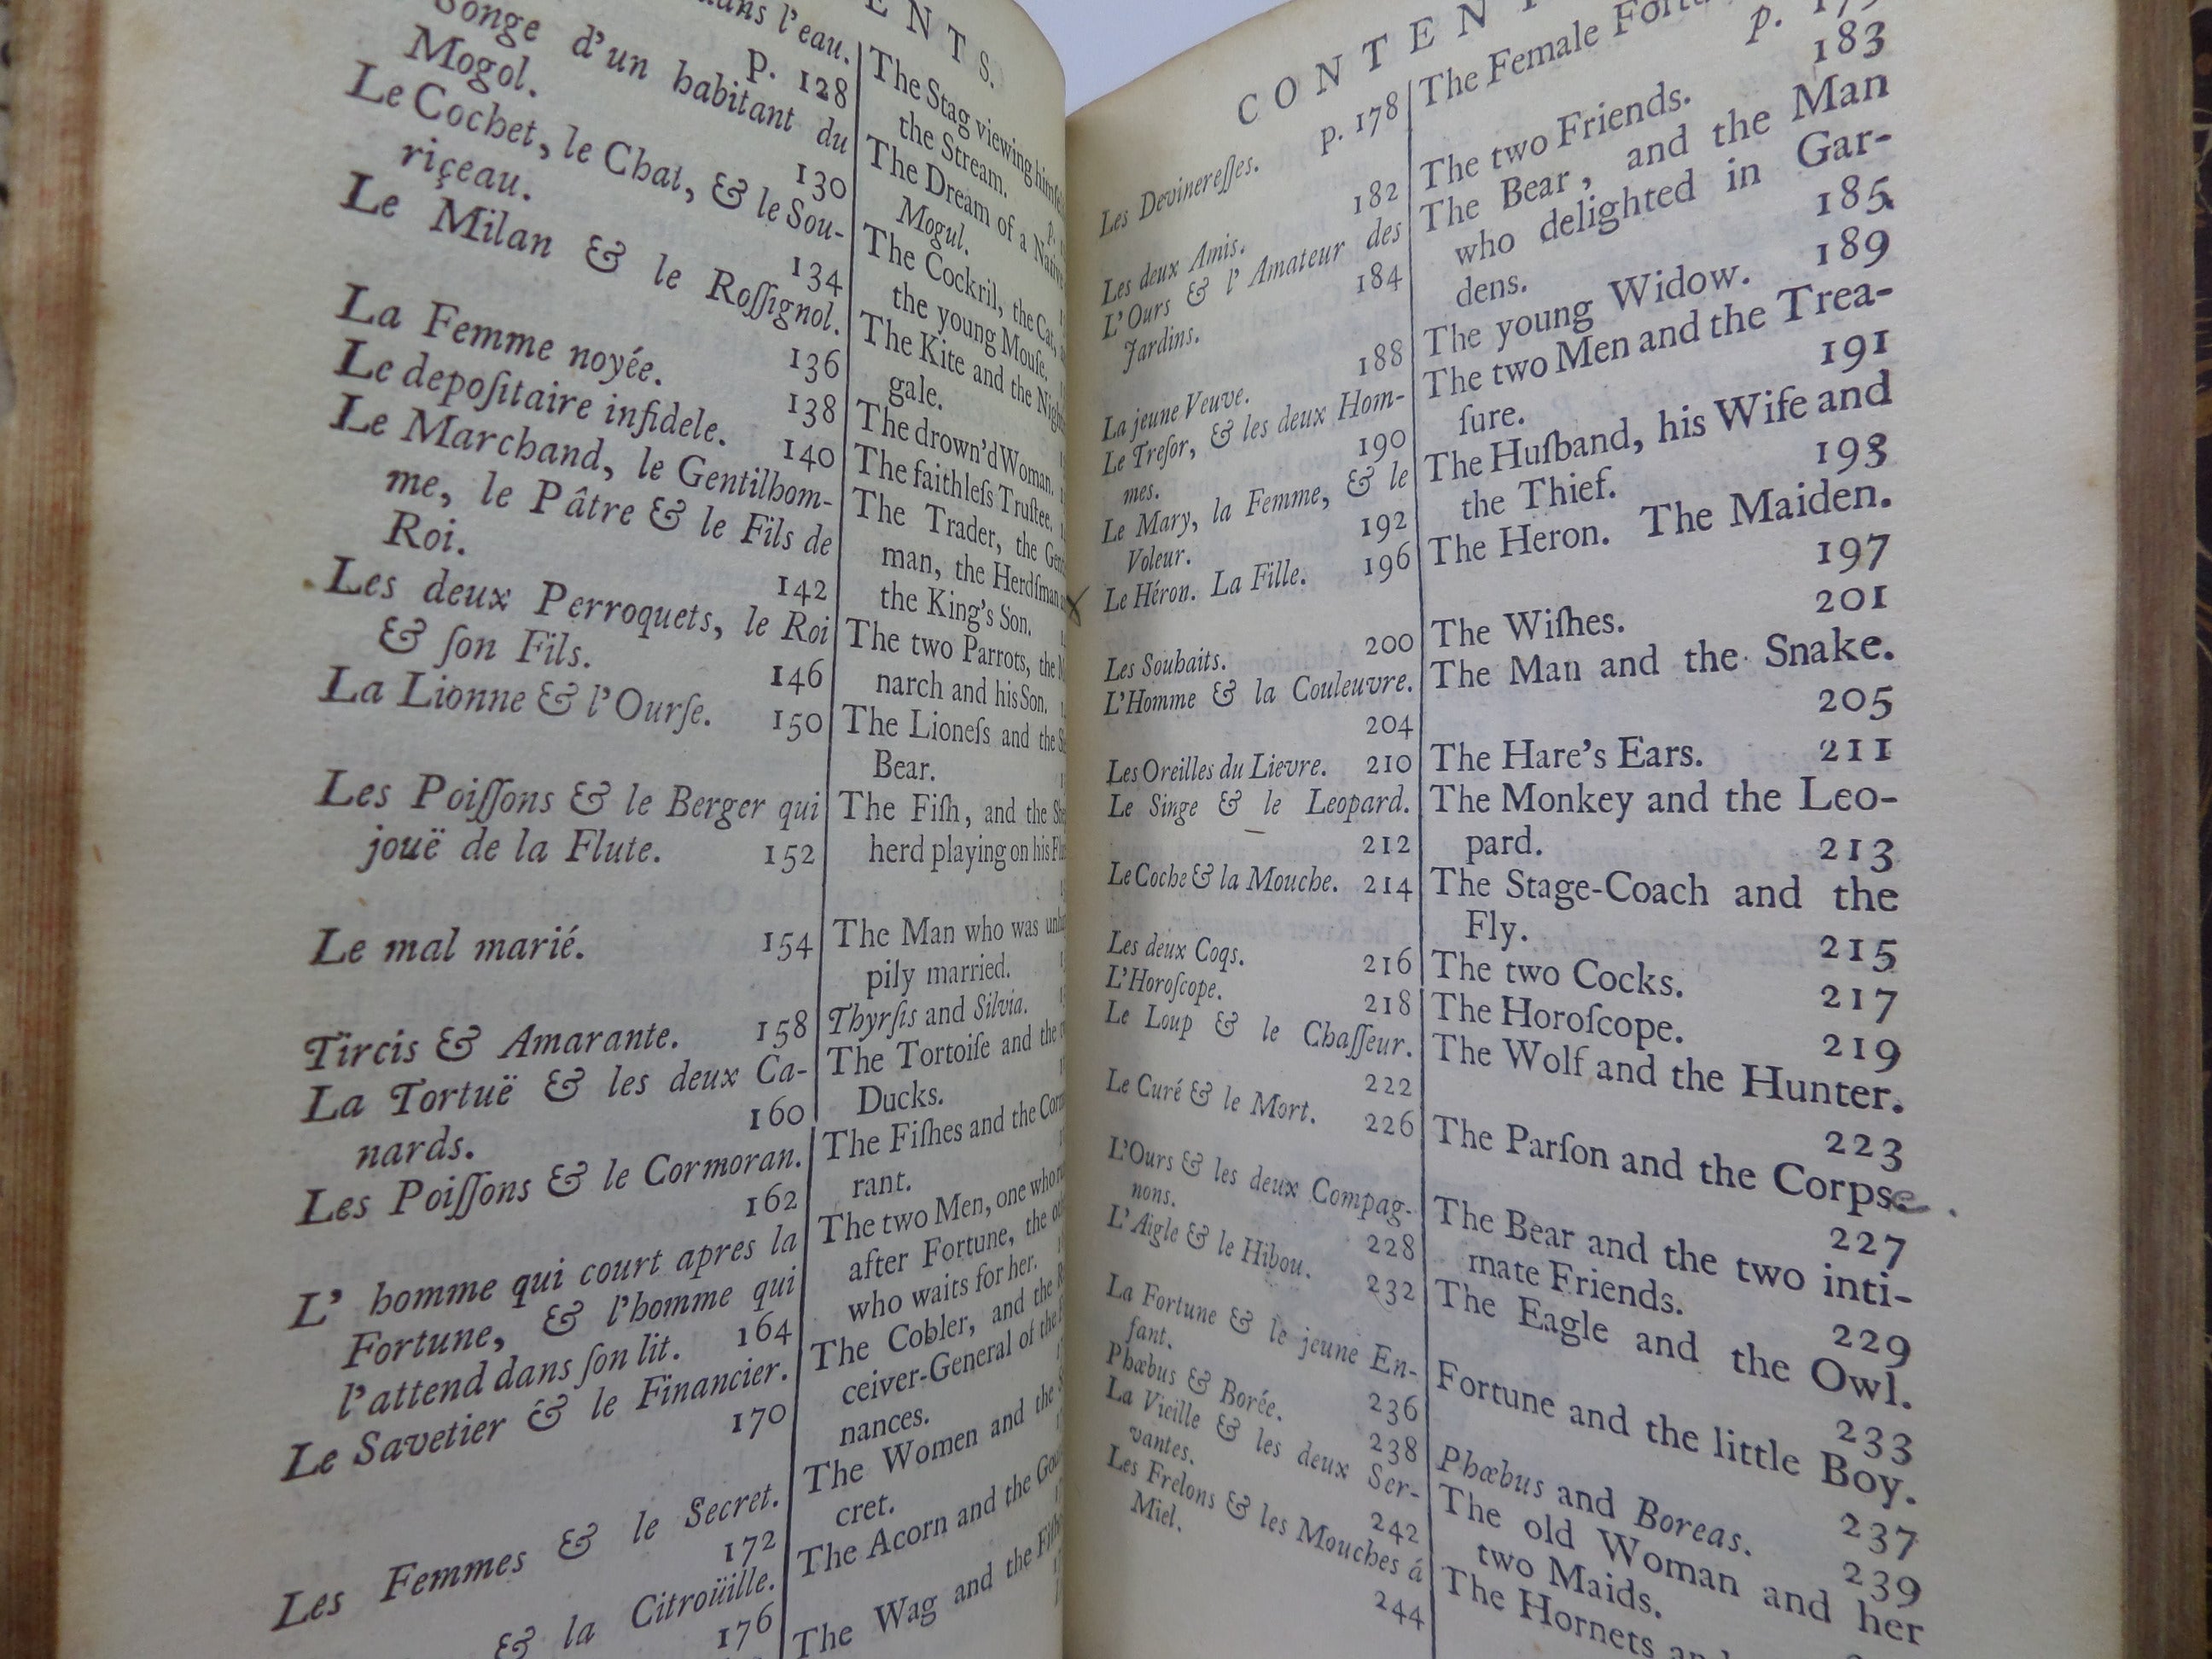 ENTS.
dans l'eau.
p. 128
Songe d'un habitant du
Mogol.
130
Le Cochet, le Chat, & le Sou-
riçeau.
134
Le Milan & le Roſſignol.
136
La Femme noyée.
138
Le depoſitaire infidele.
140
Le Marchand, le Gentilhom-
me, le Pâtre & le Fils de
Roi.
142
Les deux Perroquets, le Roi
& ſon Fils.
146
La Lionne & l'Ourſe. 150
Les Poiſſons & le Berger qui
jouë de la Flute. 152
Le mal marié. 154
Tircis & Amarante. 158
La Tortuë & les deux Ca-
nards.
160
Les Poiſſons & le Cormoran.
162
L' homme qui court apres la
Fortune, & l'homme qui
l'attend dans ſon lit. 164
Le Savetier & le Financier.
170
Les Femmes & le Secret.
172
& la Citroüille.
176
The Stag viewing himſelf
the Stream.
The Dream of a Native
Mogul.
The Cockril, the Cat,
the young Mouſe.
The Kite and the
gale.
The drown'd Woman.
The faithleſs Truſtee.
The Trader, the
man, the Herdſman
the King's Son.
The two Parrots, the
narch and his Son.
The Lioneſs and the
Bear.
The Fiſh, and the
herd playing on his
The Man who was
pily married.
Thyrſis and Silvia.
The Tortoiſe and the
Ducks.
The Fiſhes and the
rant.
The two Men, one who
after Fortune, the
who waits for her.
The Cobler, and the
ceiver-General of the
nances.
The Women and the
cret.
The Acorn and the
The Wag and the
CONTEN
Les Devinereſſes. p. 178
Les deux Amis. 182
L'Ours & l'Amateur des
Jardins. 184
La jeune Veuve. 188
Le Treſor, & les deux Hom-
mes. 190
Le Mary, la Femme, & le
Voleur. 192
Le Héron. La Fille. 196
Les Souhaits. 200
L'Homme & la Couleuvre.
204
Les Oreilles du Lievre. 210
Le Singe & le Leopard.
212
Le Coche & la Mouche. 214
Les deux Coqs. 216
L'Horoſcope. 218
Le Loup & le Chaſſeur.
222
Le Curé & le Mort. 226
L'Ours & les deux Compag-
nons. 228
L'Aigle & le Hibou. 232
La Fortune & le jeune En-
fant. 236
Phœbus & Borée. 238
La Vieille & les deux Ser-
vantes. 242
Les Frelons & les Mouches á
Miel. 244
The Female
p.
The two Friends. 183
The Bear, and the Man
who delighted in Gar-
dens. 185
The young Widow. 189
The two Men and the Trea-
ſure. 191
The Huſband, his Wife and
the Thief. 193
The Heron. The Maiden.
197
The Wiſhes. 201
The Man and the Snake.
205
The Hare's Ears. 211
The Monkey and the Leo-
pard. 213
The Stage-Coach and the
Fly. 215
The two Cocks. 217
The Horoſcope. 219
The Wolf and the Hunter.
223
The Parſon and the Corpse.
227
The Bear and the two inti-
mate Friends. 229
The Eagle and the Owl.
233
Fortune and the little Boy.
237
Phœbus and Boreas. 239
The old Woman and her
two Maids.
The Hornets